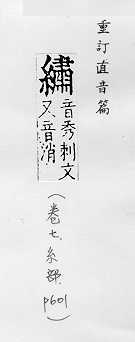 重訂直音篇
繡 音秀刺文
又音消
（卷七、糸部、p601）